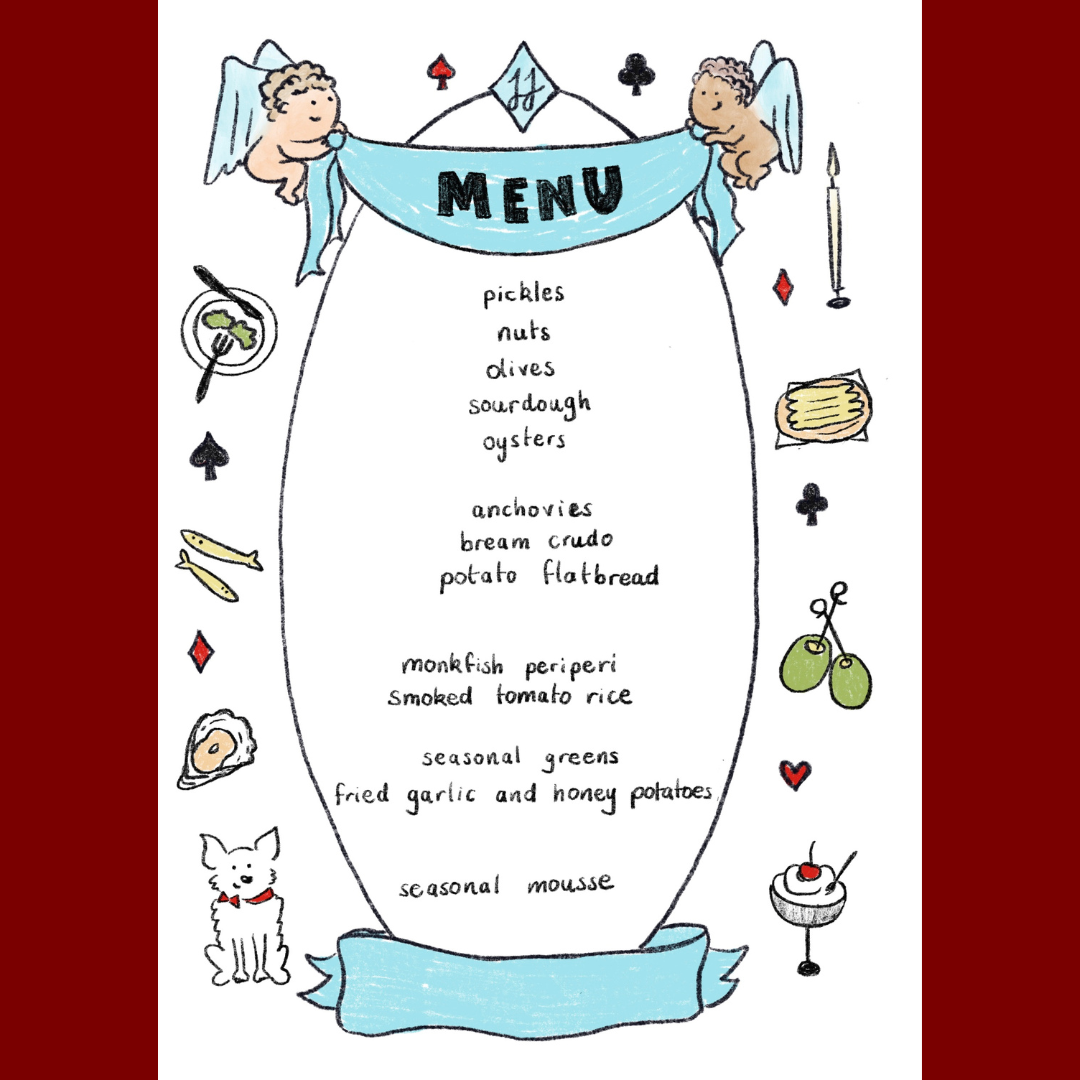 JJ
MENU
pickles
nuts
olives
sourdough
oysters
anchovies
bream crudo
potato flatbread
monkfish periperi
smoked tomato rice
seasonal greens
fried garlic and honey potatoes
seasonal mousse